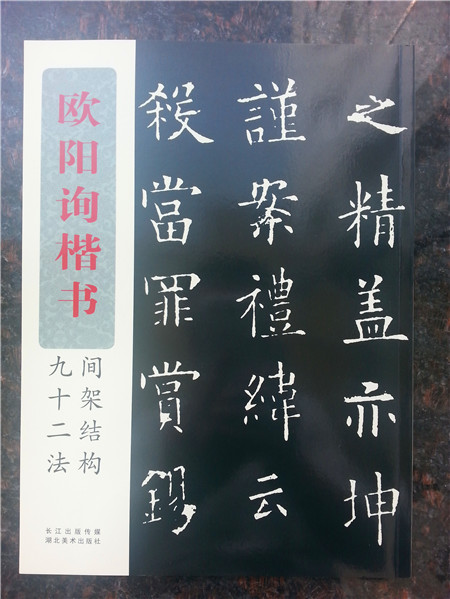 欧阳询楷书
间架结构
九十二法
长江出版传媒
湖北美术出版社
之精盖亦坤
謹案禮緯云
殺當罪賞錫